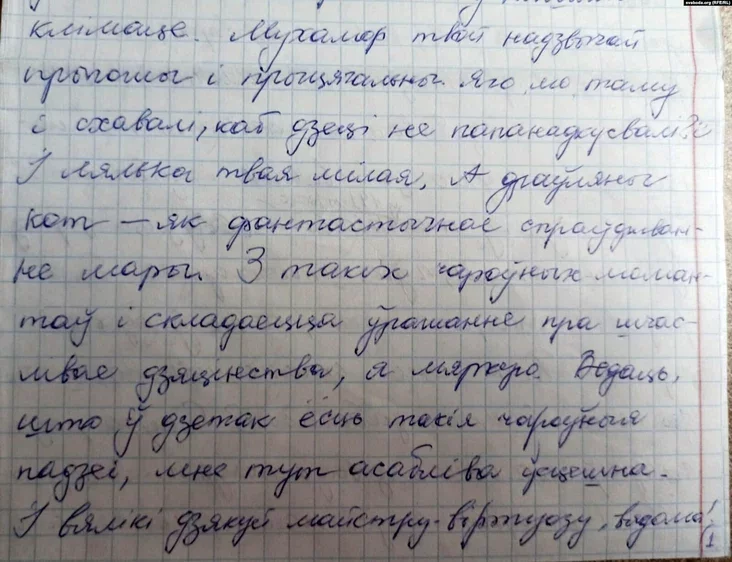 svaboda.org (RFE/RL)
клімаце. Мухамор твой надзвычай
прыгожы і прыцягальны. Яго мо таму
і схавалі, каб дзеці не папанадкусвалі?
І лялька твая мілая. А драўляны
кот — як фантастычнае спраўджван-
не мары. З такіх чароўных моман-
таў і складаецца ўражанне пра шчас-
лівае дзяцінства, я мяркую. Ведаць,
што ў дзетак ёсць такія чароўныя
падзеі, мне тут асабліва ўцешна.
І вялікі дзякуй майстру-віртуозу, вядома!
1